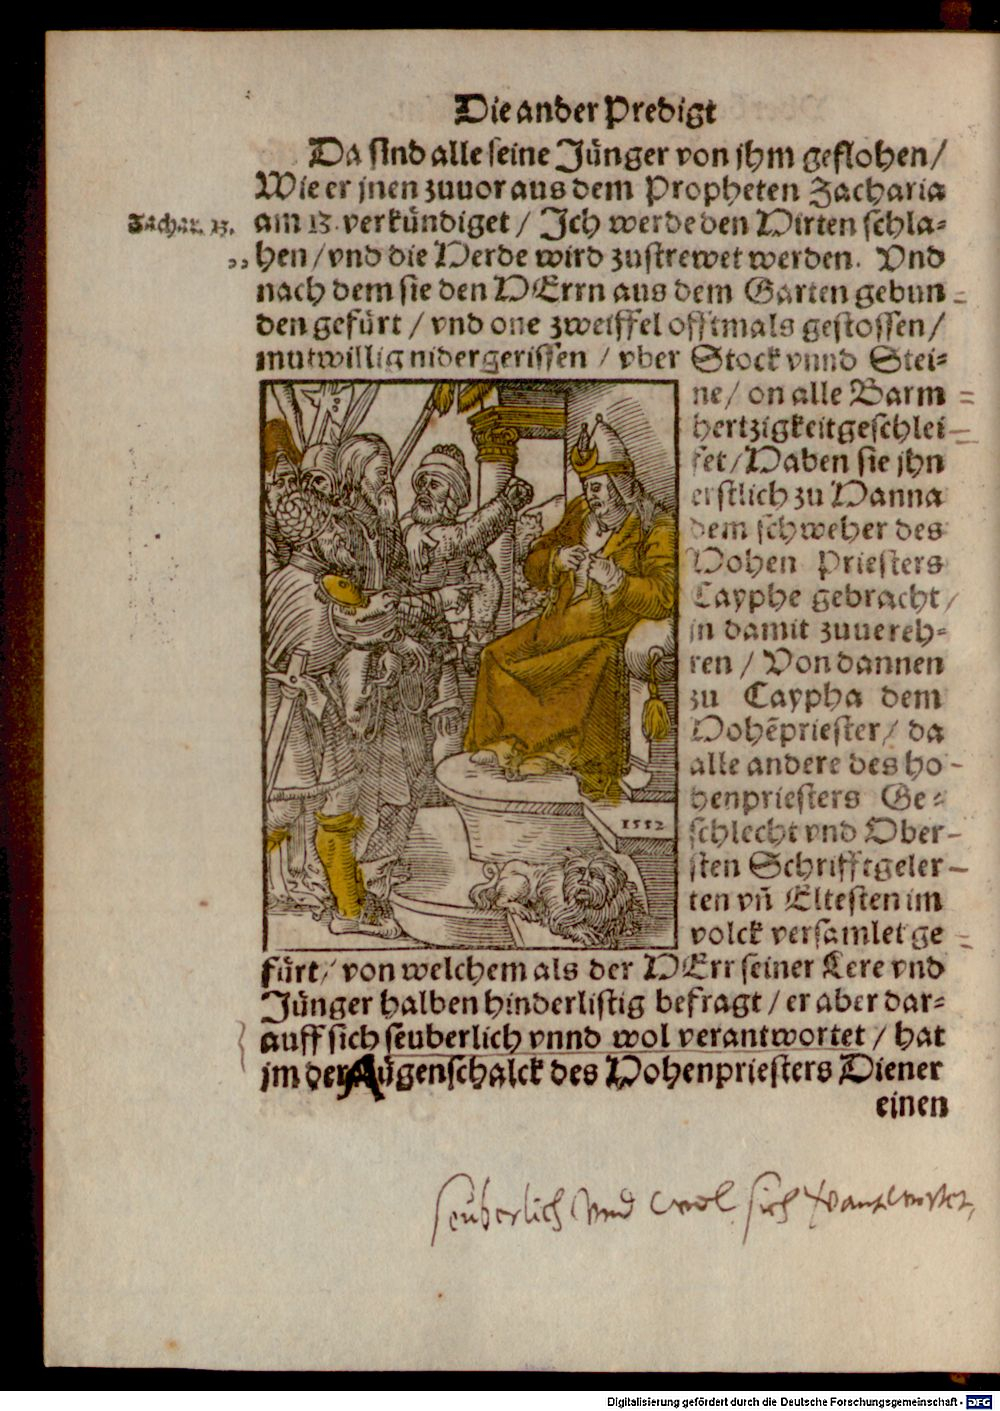 Die ander Predigt
Da sind alle seine Jünger von jhm geflohen/
Wie er jnen zuuor aus dem Propheten Zacharia
Zachar. 13.
am 13. verkündiget / Jch werde den Hirten schla-
„hen / vnd die Herde wird zustrewet werden. Vnd
nach dem sie den HErrn aus dem Garten gebun-
den gefürt / vnd one zweiffel offtmals gestossen /
mutwillig nidergerissen / vber Stock vnnd Stei-
ne / on alle Barm-
hertzigkeit geschlei-
fet / Haben sie jhn
erstlich zu Hanna
dem schweher des
Hohen Priesters
Cayphe gebracht /
jn damit zuuereh-
ren / Von dannen
zu Caypha dem
Hohēpriester / da
alle andere des ho-
henpriesters Ge-
schlecht vnd Ober-
sten Schrifftgeler-
ten vñ Eltesten im
volck versamlet ge-
1552
fürt / von welchem als der HErr seiner Lere vnd
Jünger halben hinderlistig befragt / er aber dar-
auff sich seuberlich vnnd wol verantwortet / hat
jm der Augenschalck des Hohenpriesters Diener
einen
seuberlich vnd wol sich verantwortet,
Digitalisierung gefördert durch die Deutsche Forschungsgemeinschaft - DFG